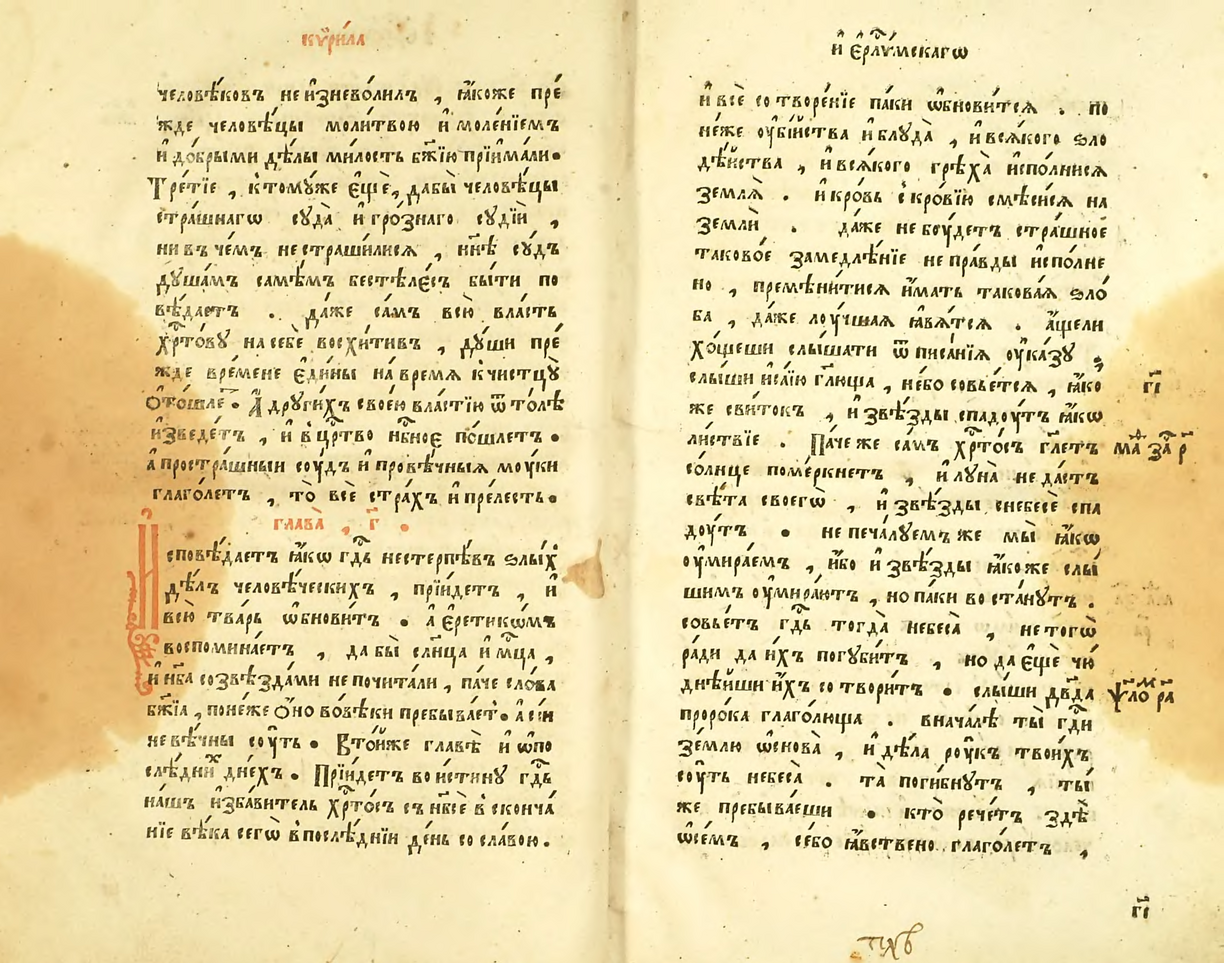 кѵ́рила
человѣ́ковъ не и҆зневолилъ , ꙗ҆́коже пре́
жде человѣ́цы моли́твою и҆ моле́нїемъ
и҆ до́брыми дѣ́лы ми́лость бж҃їю прїима́ли.
Тре́тїе , ктому́же є҆щѐ, дабы̀ человѣ́цы
стра́шнагѡ суда̀ и҆ гро́знаго судїѝ ,
ни в чѐмъ не страши́лися , нн҃ѣ су́дъ
душа́мъ самѣ́мъ бестѣле́съ бы́ти по
вѣ́даетъ . да́же са́мъ всю̀ вла́сть
хрⷭ҇то́ву на себѐ восхи́тивъ , ду́ши пре́
жде вре́мене є҆ди́ны на вре́мя к чистцꙋ̀
ѿшлѐ . А҆ други́хъ свое́ю вла́стїю ѿ то́лѣ
и҆зведе́тъ , и҆ в црⷭ҇тво нб҃ное по́шлетъ .
а҆ про стра́шныи соу́дъ и҆ про вѣ́чныѧ моу́ки
глаго́летъ , то̀ всѐ стра́хъ и҆ пре́лесть .
глава̀ , г҃ .
И҆сповѣ́даетъ ꙗ҆́кѡ гдⷭ҇ь нестерпѣ́въ ѕлы́хъ
дѣ́лъ человѣ́ческихъ , прїи́детъ , и҆
всю̀ тва́рь ѡ҆бнови́тъ . а҆ є҆ретикѡ́мъ
воспомина́етъ , да бы̀ сл҃нца и҆ мⷭ҇ца ,
и҆ нб҃а со ѕвѣзда́ми не почита́ли , па́че сло́ва
бж҃їа , поне́же ѻ҆но̀ во вѣ́ки пребыва́етъ . а҆ сїи
не вѣ́чны соу́ть . Вто́йже главѣ̀ и҆ ѡ҆ по
слѣ́днихъ дне́хъ . Прїи́детъ во и҆стину гдⷭ҇ь
на́шъ и҆зба́витель хрⷭ҇то́съ съ нб҃сѐ в сконча́
нїе вѣ́ка сегѡ̀ в послѣ́днїи де́нь со сла́вою .
и҆ є҆рⷭ҇лимскагѡ
и҆ всѐ сотворе́нїе па́ки ѡ҆бнови́тсѧ . по
не́же оу҆бі́йства и҆ блуда̀ , и҆ всѧ́кого ѕло
дѣ́йства , и҆ всѧ́кого грѣха̀ и҆спо́лнисѧ
землѧ̀ . и҆ кро́вь с кро́вїю смѣси́сѧ на
землѝ . да́же не боу́детъ стра́шное
таково́е замедлѣ́нїе непра́вды и҆спо́лне
но , премѣни́тисѧ и҆́мать такова́ѧ ѕло́
ба , да́же лоу́чшаѧ ꙗ҆вѧ́тсѧ . а҆́щели
хо́щеши слы́шати ѿ писа́нїѧ оу҆ка́зу ,
слы́ши и҆са́їю гл҃юща , не́бо совье́тсѧ , ꙗ҆́ко
г҃і
же сви́токъ , и҆ ѕвѣ́зды спадоу́тъ ꙗ҆́кѡ
ли́ствїе . Па́че же са́мъ хрⷭ҇то́съ гл҃етъ
маⷴ за р҃
со́лнце поме́ркнетъ , и҆ луна̀ не да́стъ
свѣ́та своегѡ̀ , и҆ ѕвѣ́зды с небесѐ спа
доу́тъ . не печа́луемъ же мы̀ ꙗ҆́кѡ
оу҆мира́емъ , и҆́бо и҆ ѕвѣ́зды ꙗ҆́коже слы́
шимъ оу҆мира́ютъ , но па́ки воста́нутъ .
совье́тъ гдⷭ҇ь тогда̀ небеса̀ , не тогѡ̀
ра́ди да и҆́хъ погуби́тъ , но да є҆щѐ чю
днѣ́йши и҆́хъ сотвори́тъ . слы́ши дв҃да
ѱⷧ҇ло ра҃
проро́ка глаго́люща . внача́лѣ ты̀ гдⷭ҇и
зе́млю ѡ҆снова̀ , и҆ дѣ́ла роу́къ твои́хъ
соу́ть небеса̀ . та̀ поги́бнутъ , ты́
же пребыва́еши . кто̀ рече́тъ здѣ̀
ѡ҆ се́мъ , се́бо ꙗ҆́вствено глаго́летъ ,
г҃і